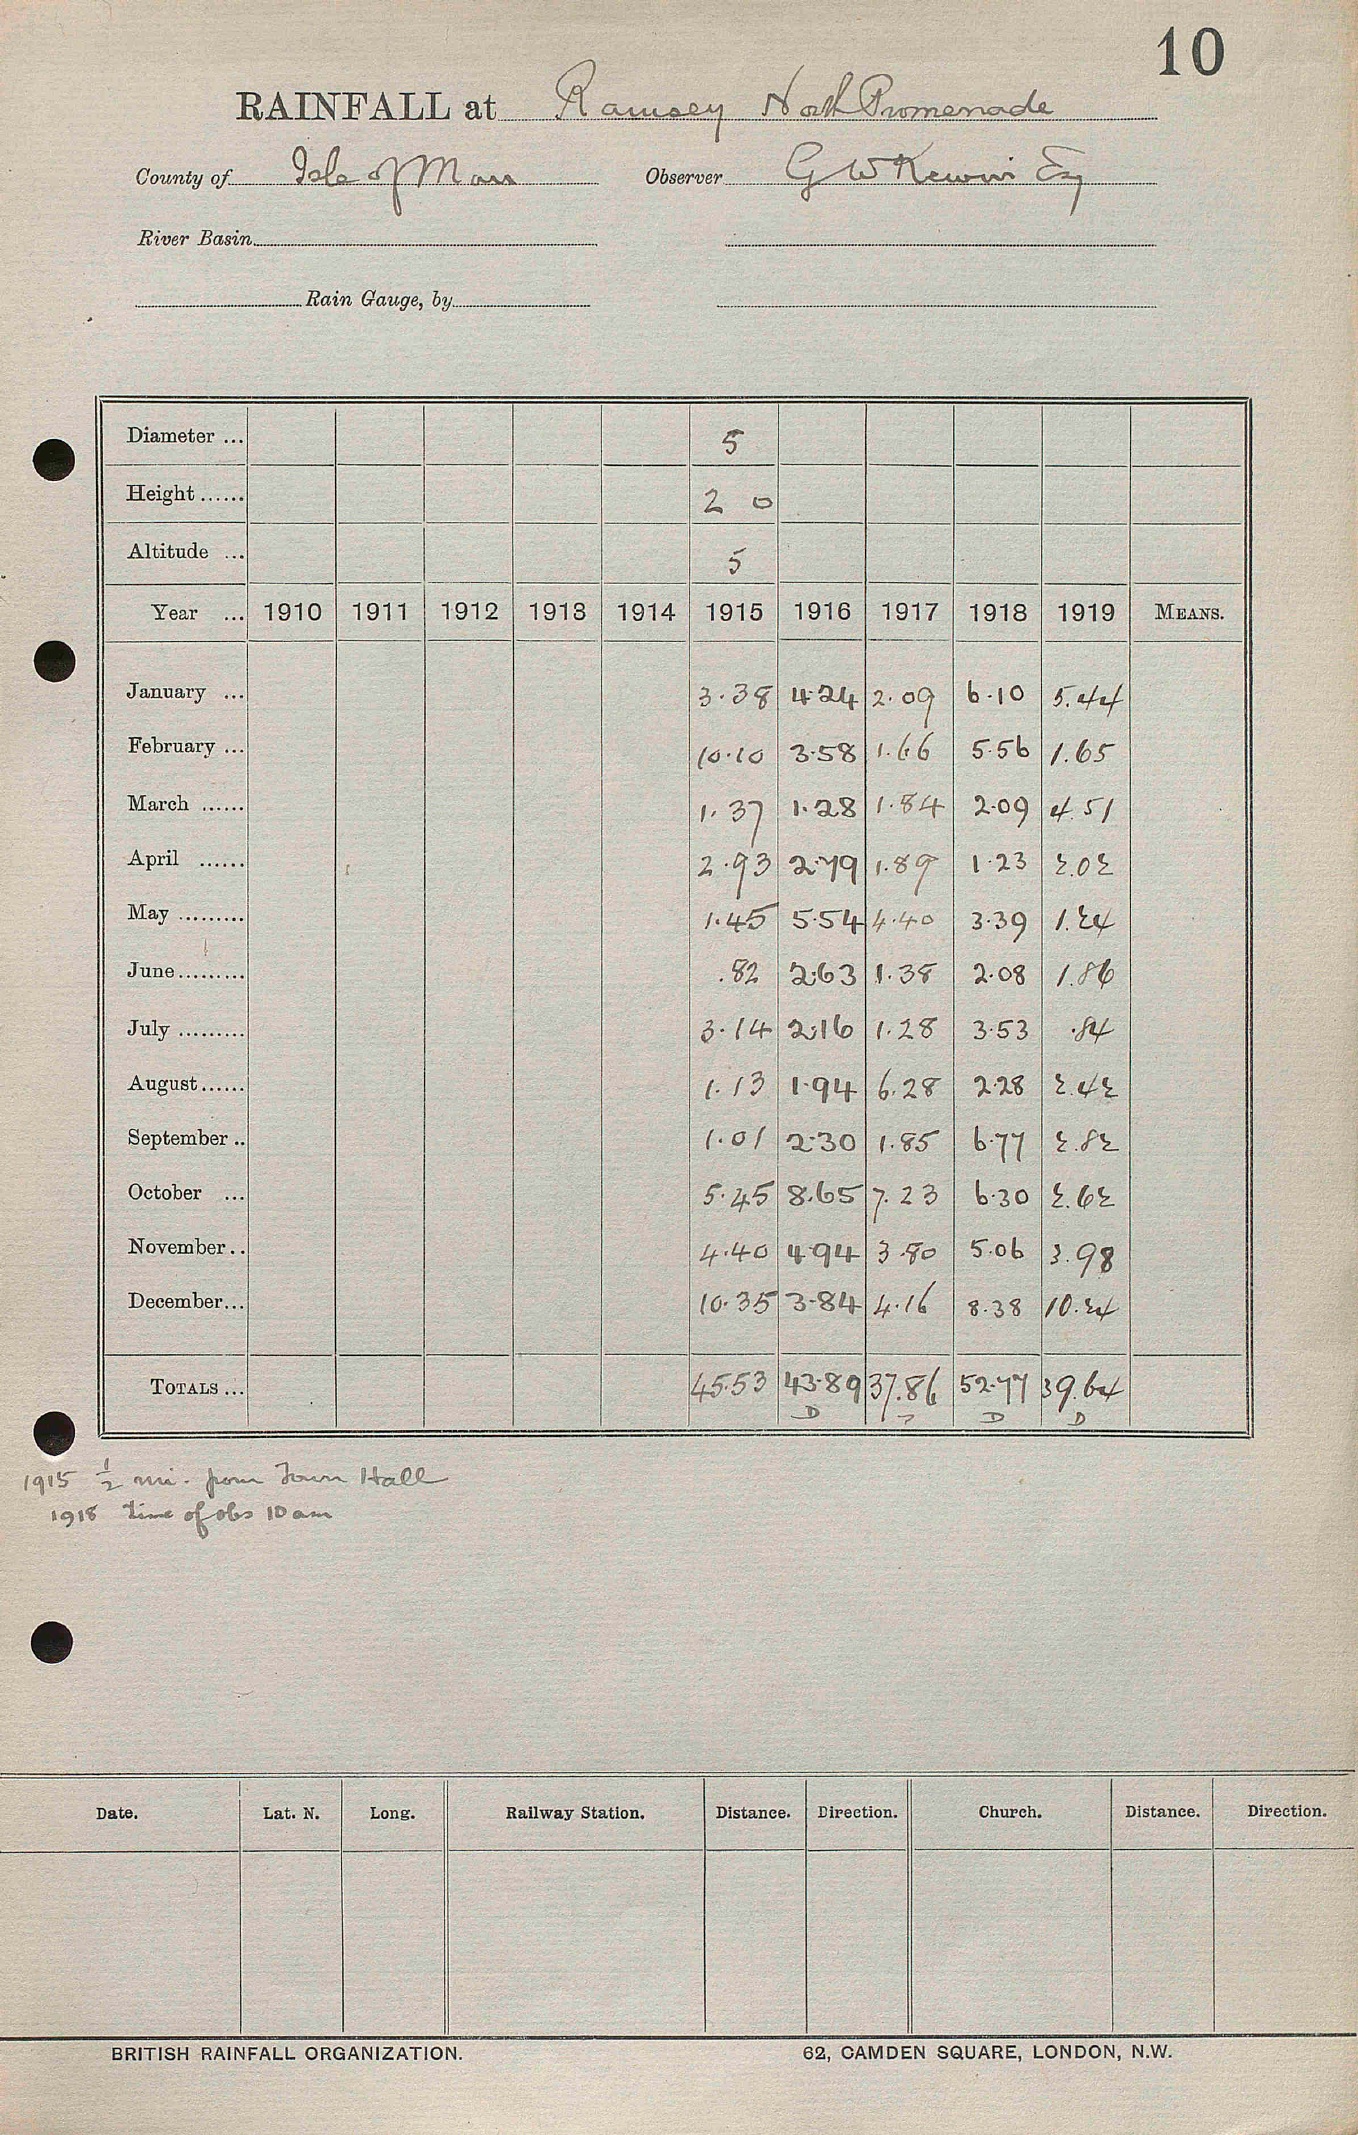 10
RAINFALL at Ramsey North Promenade
County of Isle of Man Observer G W Kewin Esq
River Basin
Rain Gauge, by
Diameter ... 5
Height ...... 2 0
Altitude ... 5
Year ... 1910 1911 1912 1913 1914 1915 1916 1917 1918 1919 MEANS.
January ... 3.38 4.24 2.09 6.10 5.44
February ... 10.10 3.58 1.66 5.56 1.65
March ...... 1.37 1.28 1.84 2.09 4.51
April ...... 2.93 2.79 1.89 1.23 2.02
May ......... 1.45 5.54 4.40 3.39 1.24
June ......... .82 2.63 1.38 2.08 1.86
July ......... 3.14 2.16 1.28 3.53 .84
August ...... 1.13 1.94 6.28 2.28 2.42
September .. 1.01 2.30 1.85 6.77 2.82
October ... 5.45 8.65 7.23 6.30 2.62
November .. 4.40 4.94 3.80 5.06 3.98
December ... 10.35 3.84 4.16 8.38 10.24
TOTALS ... 45.53 43.89 37.86 52.77 39.64
D D D
1915 ½ mi. from Town Hall
1918 time of obs 10 am
Date. Lat. N. Long. Railway Station. Distance. Direction. Church. Distance. Direction.
BRITISH RAINFALL ORGANIZATION. 62, CAMDEN SQUARE, LONDON, N.W.